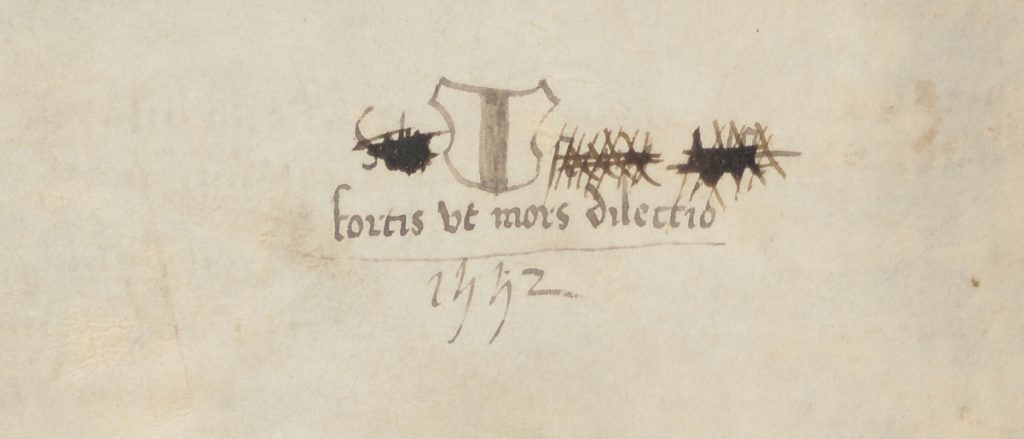 fortis vt mors dilectio
1552